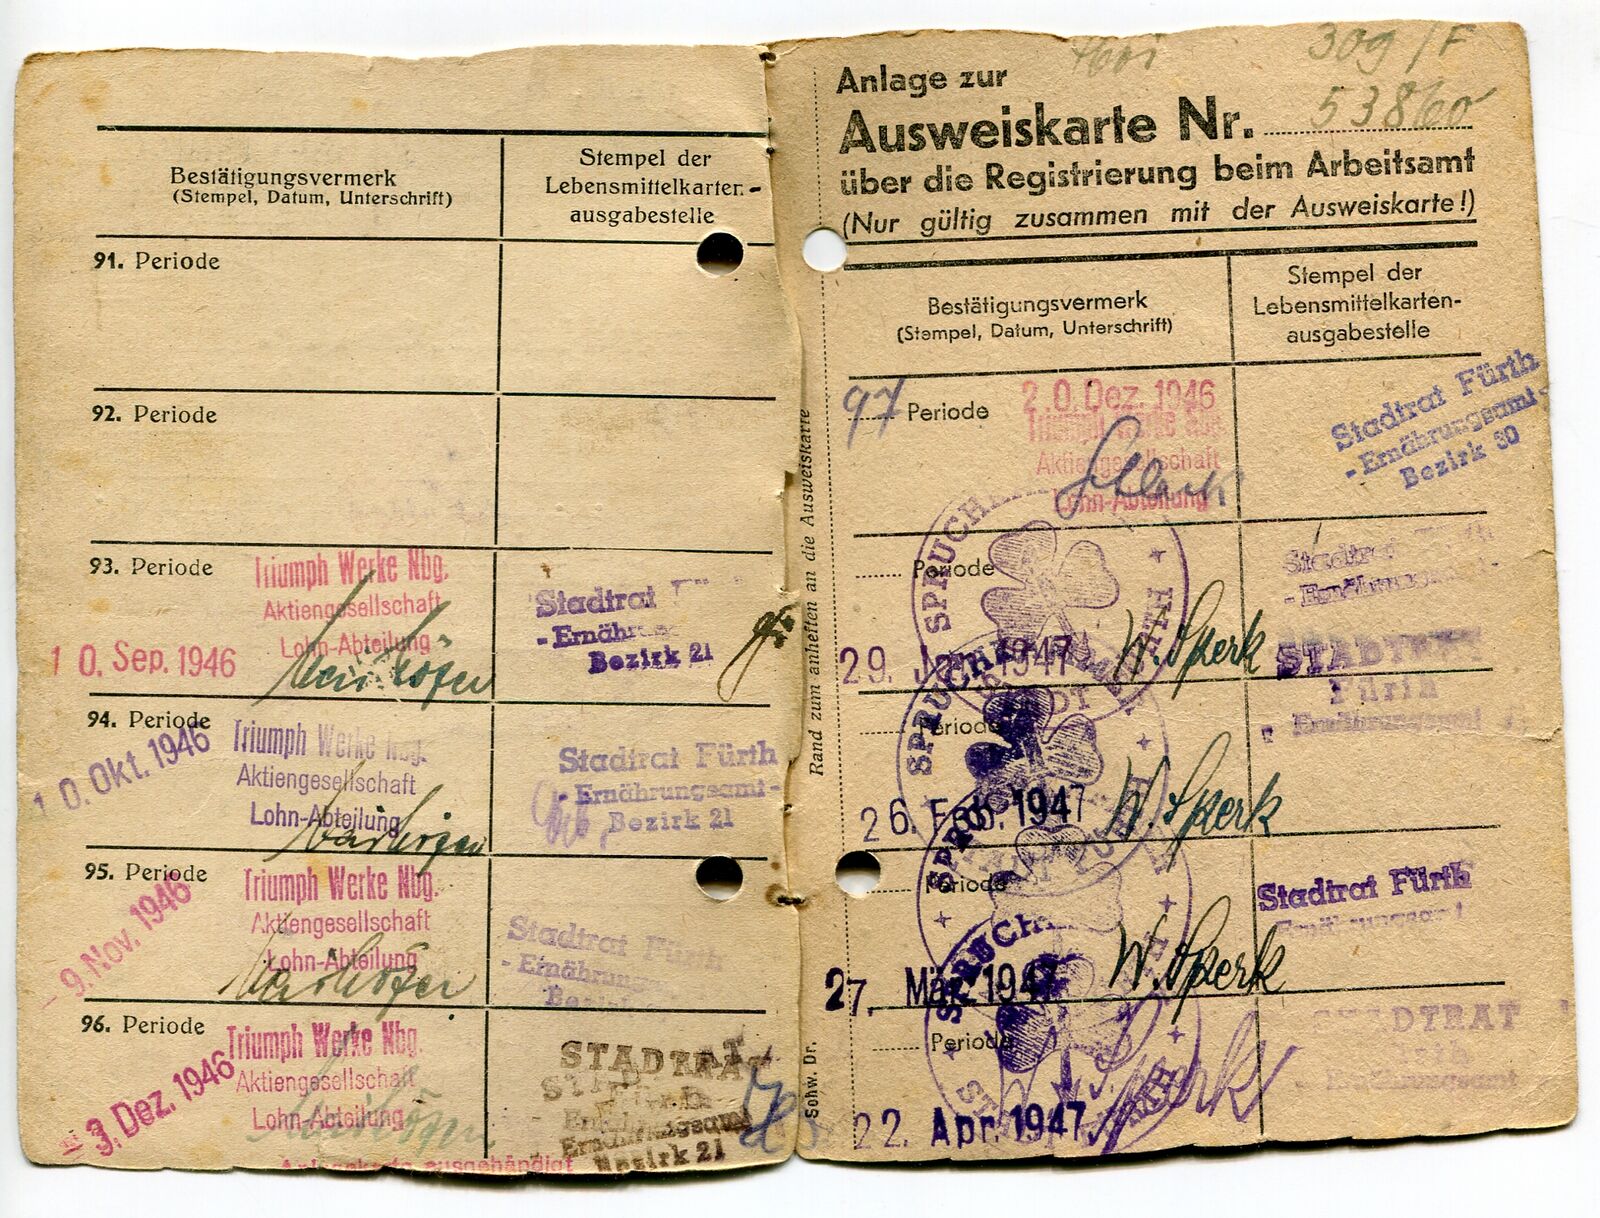 Bestätigungsvermerk
(Stempel, Datum, Unterschrift)
Stempel der
Lebensmittelkarten-
ausgabestelle
91. Periode
92. Periode
93. Periode
Triumph Werke Nbg.
Aktiengesellschaft
Lohn-Abteilung
10. Sep. 1946
Stadtrat
- Ernähr
Bezirk 21
94. Periode
10. Okt. 1946
Triumph Werke Nbg.
Aktiengesellschaft
Lohn-Abteilung
Stadtrat Fürth
- Ernährungsamt -
Bezirk 21
95. Periode
- 9. Nov. 1946
Triumph Werke Nbg.
Aktiengesellschaft
Lohn-Abteilung
Stadtrat Fürth
- Ernährungs
Bezirk
96. Periode
- 3. Dez. 1946
Triumph Werke Nbg.
Aktiengesellschaft
Lohn-Abteilung
STADTRAT
Ernährungsamt
Bezirk 21
ausgehändigt
Rand zum anheften an die Ausweiskarte
Schw. Dr.
309/F
Anlage zur
Ausweiskarte Nr. 53860
über die Registrierung beim Arbeitsamt
(Nur gültig zusammen mit der Ausweiskarte!)
Bestätigungsvermerk
(Stempel, Datum, Unterschrift)
Stempel der
Lebensmittelkarten-
ausgabestelle
97 Periode
20. Dez. 1946
Triumph Werke Nbg.
Aktiengesellschaft
Lohn-Abteilung
Stadtrat Fürth
- Ernährungsamt -
Bezirk 30
Periode
SPRUCHKAMMER
29. Jan. 1947
W. Sperk
Stadtrat Fürth
- Ernährungsamt -
Periode
SPRUCHKAMMER
26. Feb. 1947
W. Sperk
STADTRAT
Fürth
- Ernährungsamt
Periode
27. März 1947
W. Sperk
Stadtrat Fürth
Ernährungsamt
Periode
SPRUCH
22. Apr. 1947
Sperk
STADTRAT
Ernährungsamt